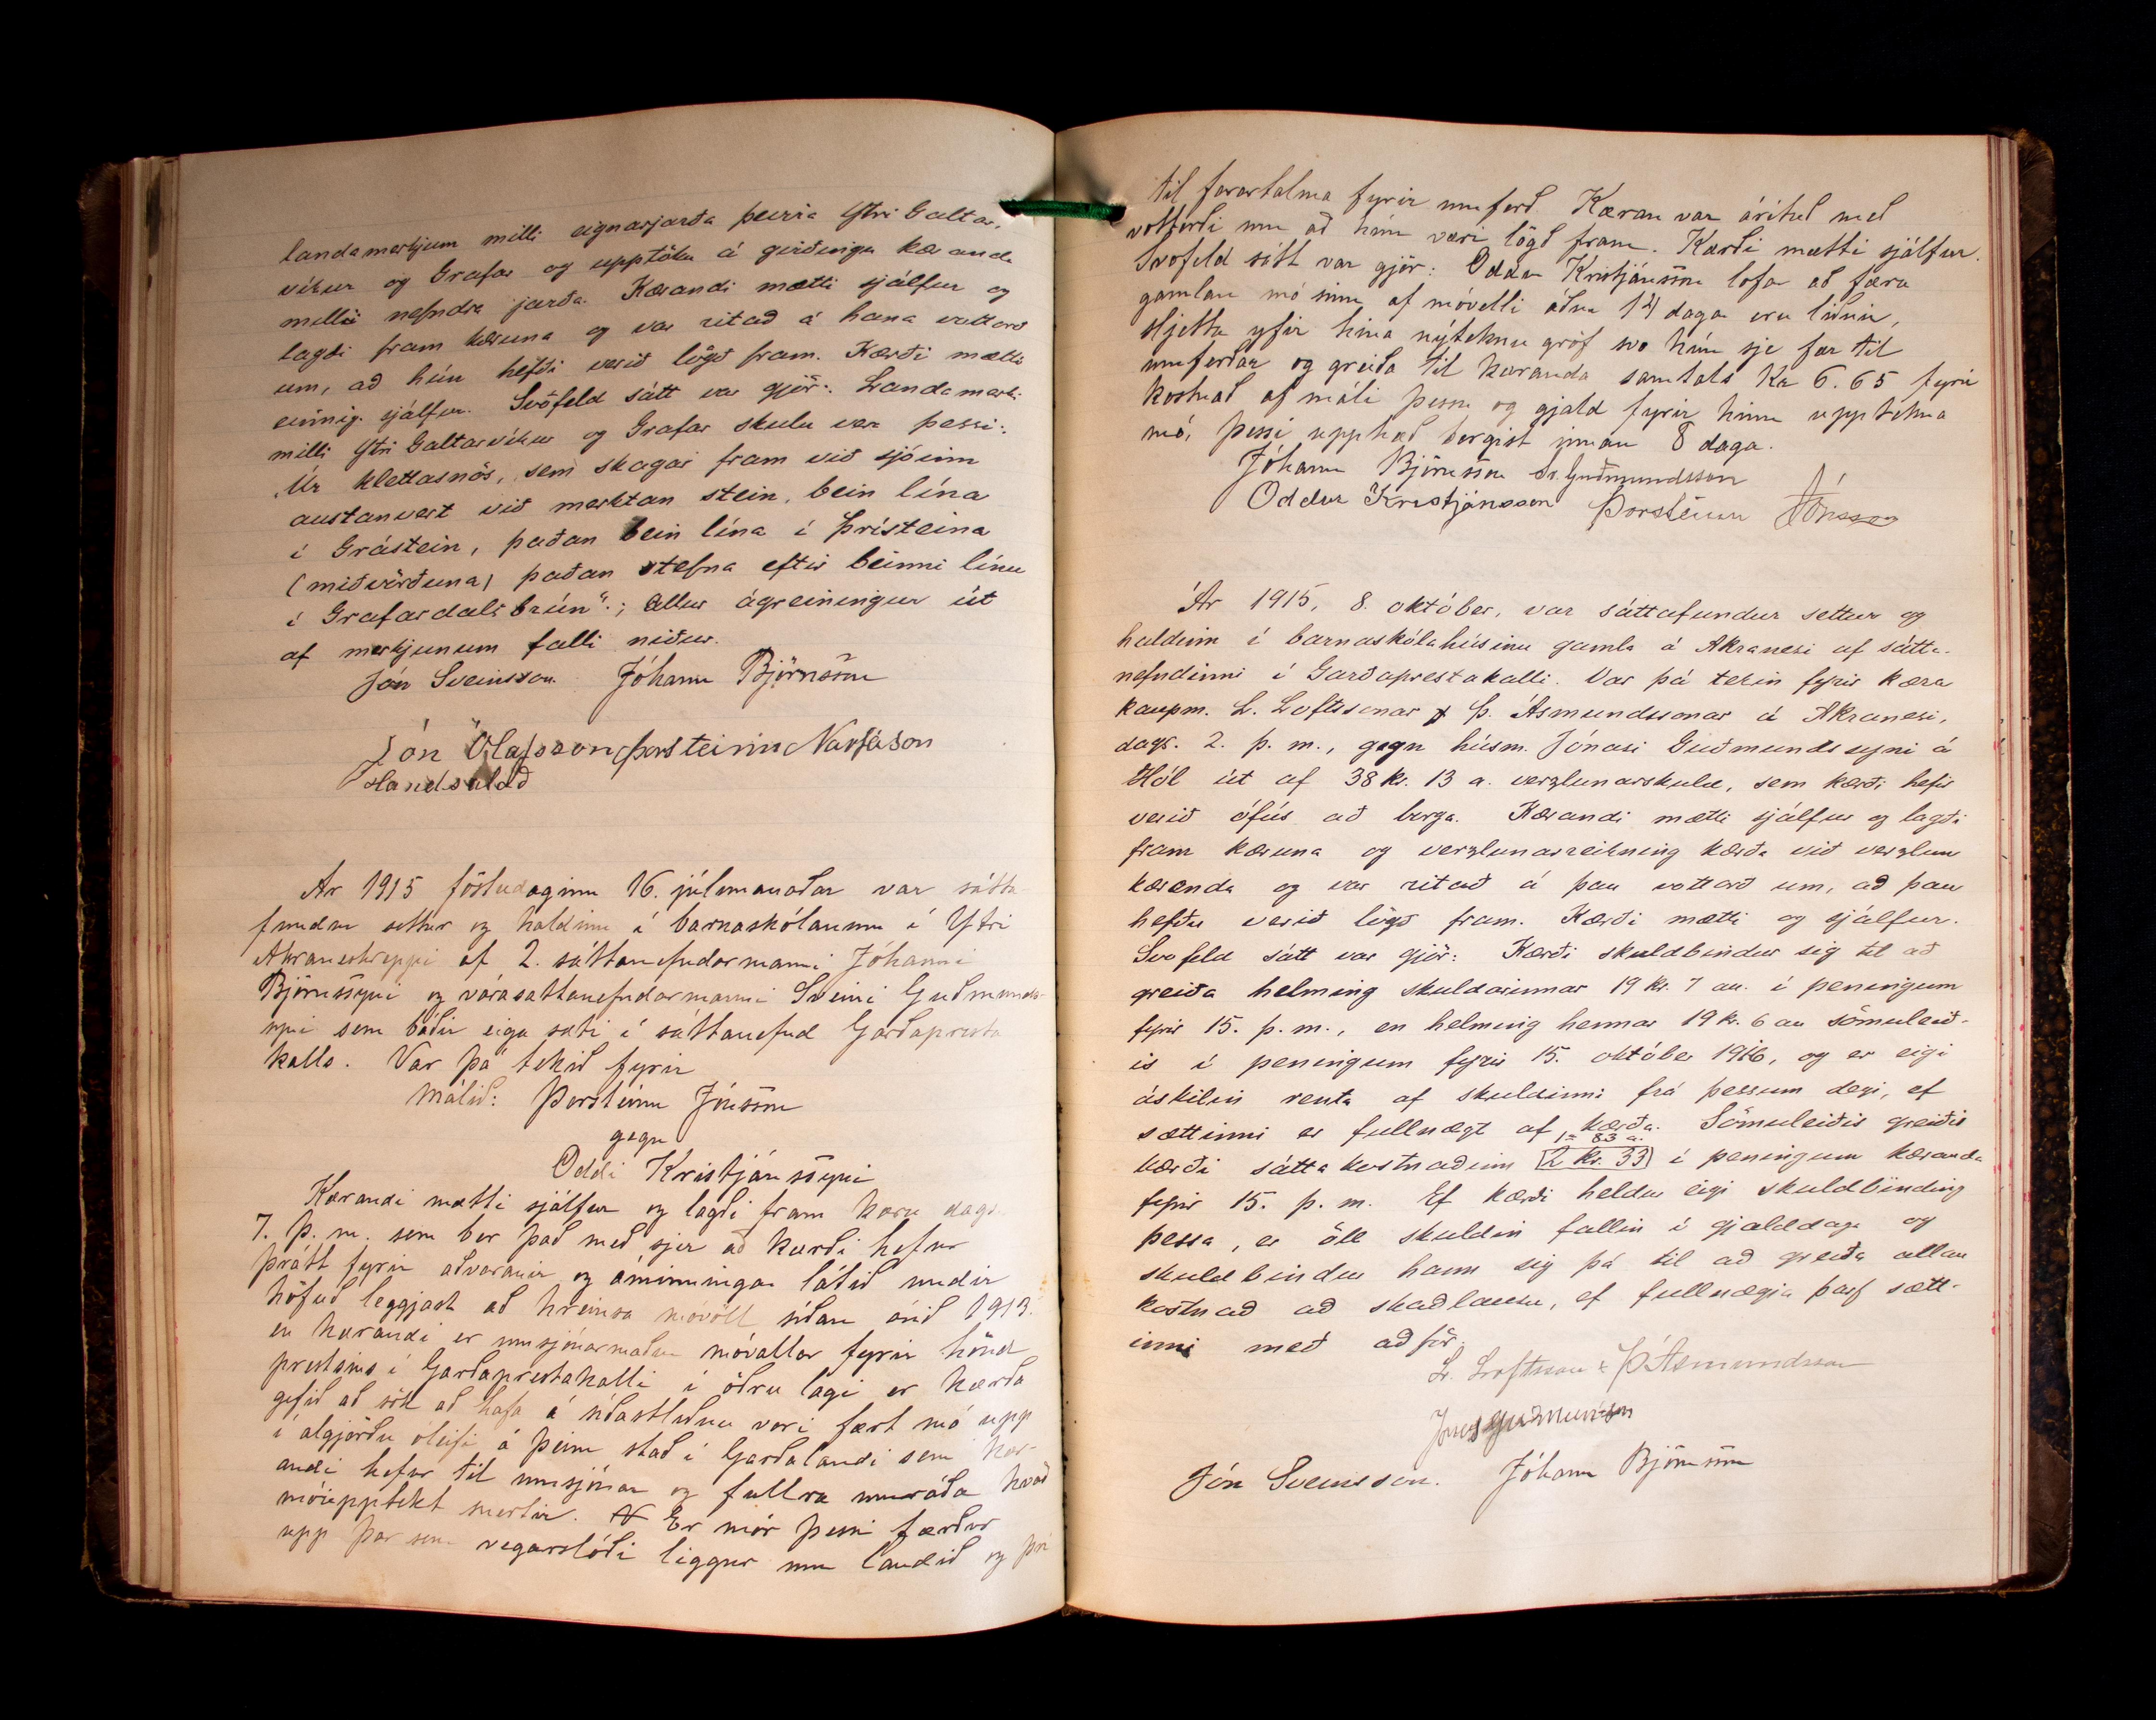 landamerkjum milli eignarjarða þeirra Ytri Galtar-
víkur og Grafar og upptöku á girðingu kæranda
milli nefndra jarða. Kærandi mætti sjálfur og
lagði fram kæruna og var ritað á hana vottorð
um, að hún hefði verið lögð fram. Kærði mætti
einnig sjálfur. Svofeld sátt var gjör: Landamerki
milli Ytri Galtarvíkur og Grafar skulu vera þessi:
„Úr klettasnös, sem skagar fram við sjóinn
austanvert við merktan stein, bein lína
í Grástein, þaðan bein lína í Þrísteina
(miðvörðuna) þaðan stefna eftir beinni línu
í Grafardalsbrún“; allur ágreiningur út
af merkjunum falli niður.
Jón Sveinsson Jóhann Björnsson
Jón Ólafsson Þorsteinn Narfason
Handsalað
Ár 1915 föstudaginn 16. júlímanaðar var sátta-
fundur settur og haldinn í barnaskólanum í Ytri
Akraneshreppi af 2. sáttanefndarmanni Jóhanni
Björnssyni og varasáttanefndarmanni Sveini Guðmunds-
syni sem báðir eiga sæti í sáttanefnd Garðapresta
kalls. Var þá tekið fyrir
Málið: Þorsteinn Jónsson
gegn
Oddi Kristjánssyni
Kærandi mætti sjálfur og lagði fram kæru dags.
7. þ. m. sem ber það með sjer að kærði hefur
þrátt fyrir aðvaranir og áminningar látið undir
höfuð leggjast að hreinsa móvöll síðan árið 1913.
en kærandi er umsjónarmaður móvallar fyrir hönd
prestsins í Garðaprestakalli í öðru lagi er kærða
gefið að sök að hafa á síðastliðnu vori fært mó upp
í algjörðu óleyfi á þeim stað í Garðalandi sem kær-
andi hefur til umsjónar og fullra umráða hvað
móupptekt snertir. Er mór þessi færður
upp þar sem vegarslóði liggur um landið og því
til farartalma fyrir umferð. Kæran var árituð með
vottorði um að hún væri lögð fram. Kærði mætti sjálfur.
Svofeld sátt var gjör: Oddur Kristjánsson lofar að færa
gamlan mó sinn af móvelli áður 14 dagar eru liðnir,
sljetta yfir hina nýteknu gröf svo hún sje fær til
umferðar og greiða til kæranda samtals Kr 6.65 fyrir
kostnað af máli þessu og gjald fyrir hinn upptekna
mó, þessi upphæð borgist innan 8 daga.
Jóhann Björnsson Sv. Guðmundsson
Oddur Kristjánsson Þorsteinn Jónsson
Ár 1915, 8. október, var sáttafundur settur og
haldinn í barnaskólahúsinu gamla á Akranesi af sátta-
nefndinni í Garðaprestakalli. Var þá tekin fyrir kæra
kaupm. L. Loftssonar & Þ. Ásmundssonar á Akranesi,
dags. 2. þ. m., gegn húsm. Jónasi Guðmundssyni á
Hól út af 38 kr. 13 a. verzlunarskuld, sem kærði hefir
verið ófús að borga. Kærandi mætti sjálfur og lagði
fram kæruna og verzlunarreikning kærða við verzlun
kæranda og var ritað á þau vottorð um, að þau
hefðu verið lögð fram. Kærði mætti og sjálfur.
Svofeld sátt var gjör: Kærði skuldbindur sig til að
greiða helming skuldarinnar 19 kr. 7 au. í peningum
fyrir 15. þ. m., en helming hennar 19 kr. 6 au sömuleið-
is í peningum fyrir 15. október 1916, og er eigi
áskilin renta af skuldinni frá þessum degi, ef
sættinni er fullnægt af kærða. Sömuleiðis greiðir
1= 83 a.
kærði sáttakostnaðinn 2 kr. 33 í peningum kæranda
fyrir 15. þ. m. Ef kærði heldur eigi skuldbinding
þessa, er öll skuldin fallin í gjalddaga og
skuldbindur hann sig þá til að greiða allan
kostnað að skaðlausu, ef fullnægja þarf sætt-
inni með aðför.
L. Loftsson & Þ Ásmundsson
Jónas Guðmundsson
Jón Sveinsson. Jóhann Björnsson